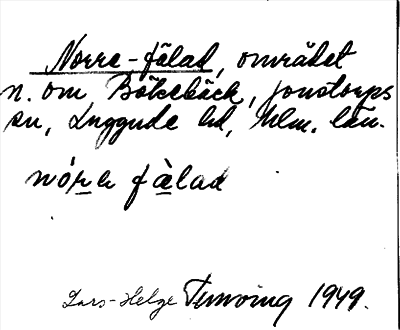 Norre-fälad, området
n. om Bökebäck, Jonstorps
sn, Luggude hd, Mlm. län.
nór̲e fà̲lad
Lars-Helge 1949.